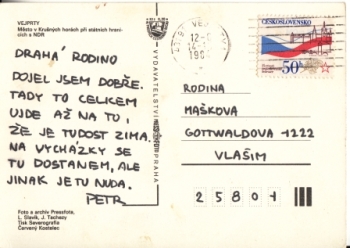 VEJPRTY
Město v Krušných horách při státních hrani-
cích s NDR
DRAHÁ RODINO
DOJEL JSEM DOBŘE.
TADY TO CELKEM
UJDE AŽ NA TO,
ŽE JE TU DOST ZIMA.
NA VYCHÁZKY SE
TU DOSTANEM, ALE
JINAK JE TU NUDA.
PETR
Foto a archiv Pressfoto,
L. Slavík, J. Tachezy
Tisk Severografia
Červený Kostelec
VYDAVATELSTVÍ
PRAHA
ČESKOSLOVENSKO
50h
RODINA
MAŠKOVA
GOTTWALDOVA 1222
VLAŠIM
25801